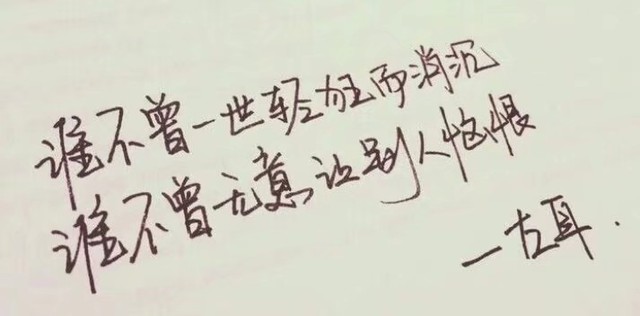 谁不曾一世轻狂而消沉
谁不曾无意让别人怨恨
一左耳.